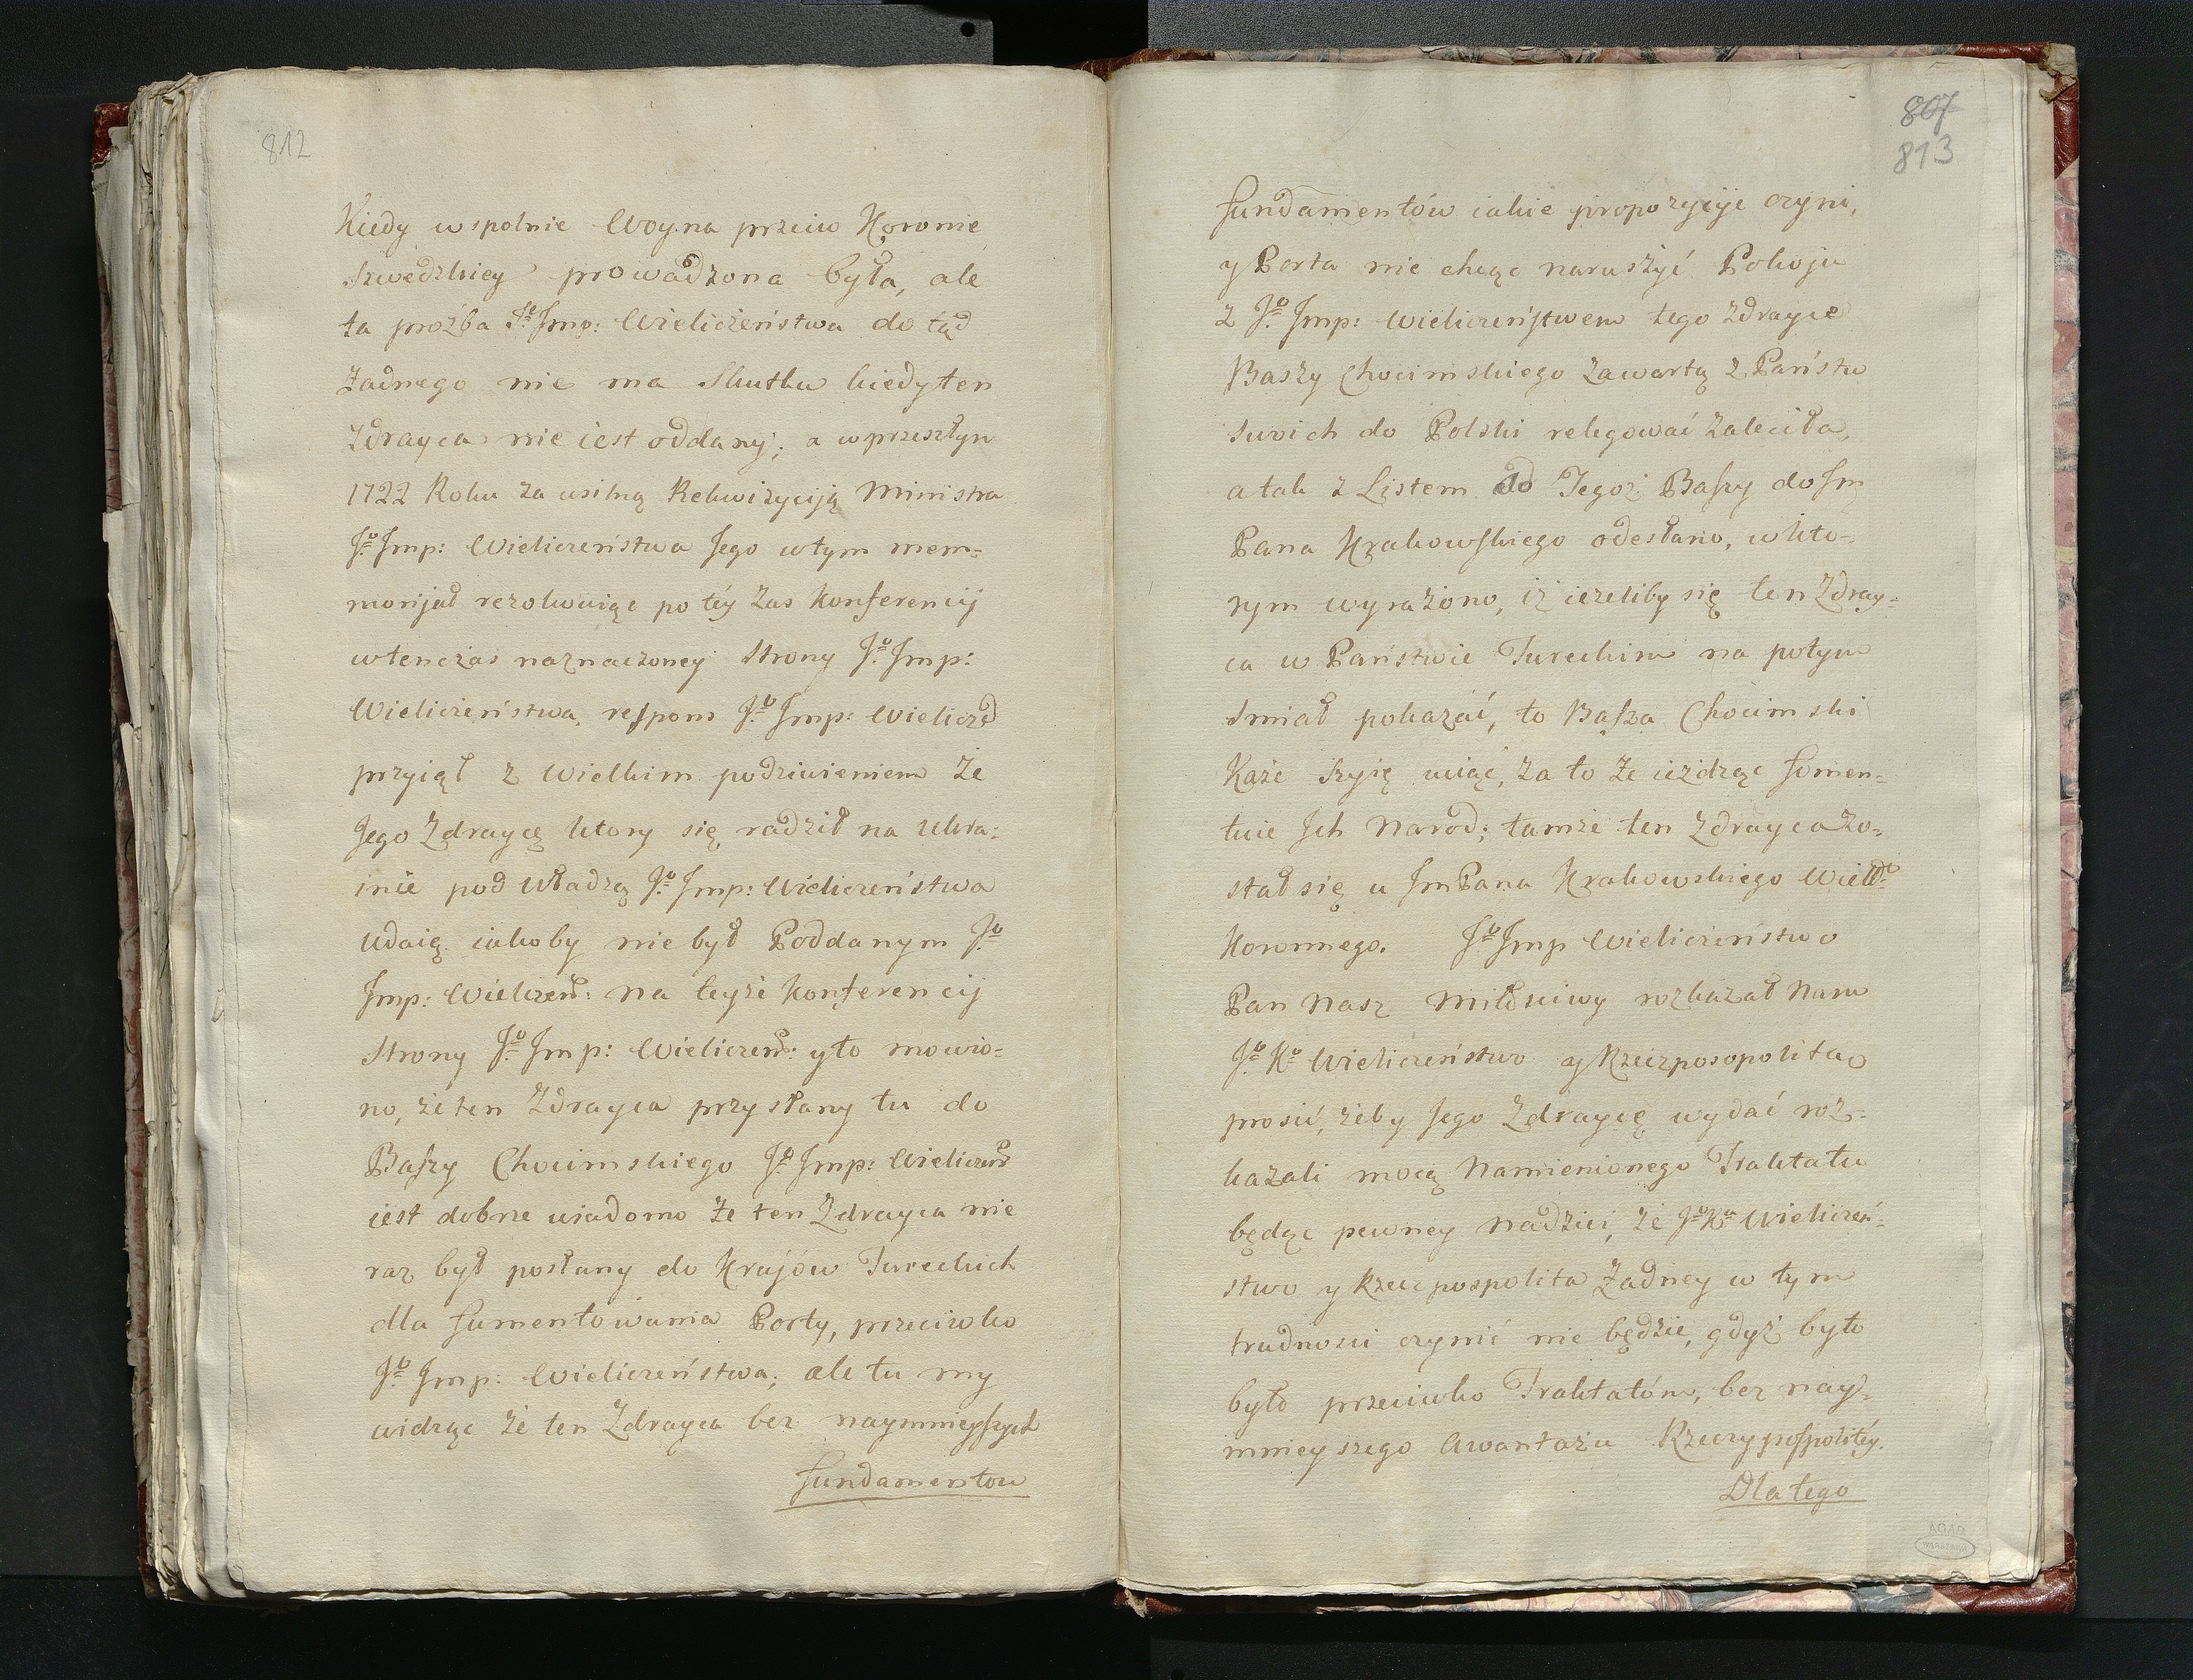 812
Kiedy wspolnie Woyna przeciw Koronie
Szwedzkiey prowadzona była, ale
ta proźba Jº Jmp: Wieliczeństwa do tąd
Żadnego nie ma Skutku kiedy ten
Zdrayca nie iest oddany; a wprzeszłym
1722 Roku za usilną Rekwizyciją Ministra
Jº Jmp: Wieliczeństwa Jego wtym mem=
morijał rezolwuiąc po téy Zas Konferencij
wtenczas naznaczoney Strony Jº Jmp:
Wieliczeństwa, respons Jº Jmp: Wieliczed
przyiął z wielkim podziwieniem Że
Jego Zdraycę ktory się radził na Ukra=
inie pod Władzą Jº Jmp: Wieliczeństwa
Udaią iakoby nie był Poddanym Jº
Jmp: Wieliczeń: na teyże Konferencij
Strony Jº Jmp: Wieliczeń: yto mowio=
no, że ten Zdrayca przysłany tu do
Baszy Chocimskiego Jº Jmp: Wieliczeń
iest dobrze wiadomo Że ten Zdrayca nie
raz był posłany do Krajów Tureckich
dla fumentowania Porty, przeciwko
Jº Jmp: Wieliczeństwa; ale tu my
widząc że ten Zdrayca bez naymnieyszych
fundamentow
807
813
fundamentów iakie propozycyje czyni,
y Porta nie chcąc naruszyć Pokoju
z Jº Jmp: Wieliczeństwem tego zdrayce
Baszy Chocimskiego Zawartą z Państw
swoich do Polski relegować Zaleciła,
a tak z Listem od Tegoż Baszy do Jm
Pana Krakowskiego odesłano, w kto=
rym wyrażono, iż ieżeliby się ten Zdray=
ca w Państwie Tureckim na potym
Smiał pokazać, to Basza Chocimski
Każe Szyię uciąć, za to Że ieżdżąc fomen=
tuie Jch Narod; tamże ten Zdrayca Zo=
stał się u Jm Pana Krakowskiego
Koronnego. Jº Jmp Wieliczeństwo
Pan Nasz Miłściwy rozkazał Nam
Jº Kº Wieliczeństwo y Rzeczposopolitao
prosić, żeby Jego Zdraycę wydać roz=
kazali mocą Namienionego Traktatu
będąc pewney Nadziei, że Jº Kº Wieliczeń=
stwo y Rzeczpospolita Żadney w tym
trudności czynić nie będzie, gdyż było
było przeciwko Traktatóm, bez nay=
mnieyszego Awantażu Rzeczypospolitéy.
Dla tego
AGAD
WARSZAWA